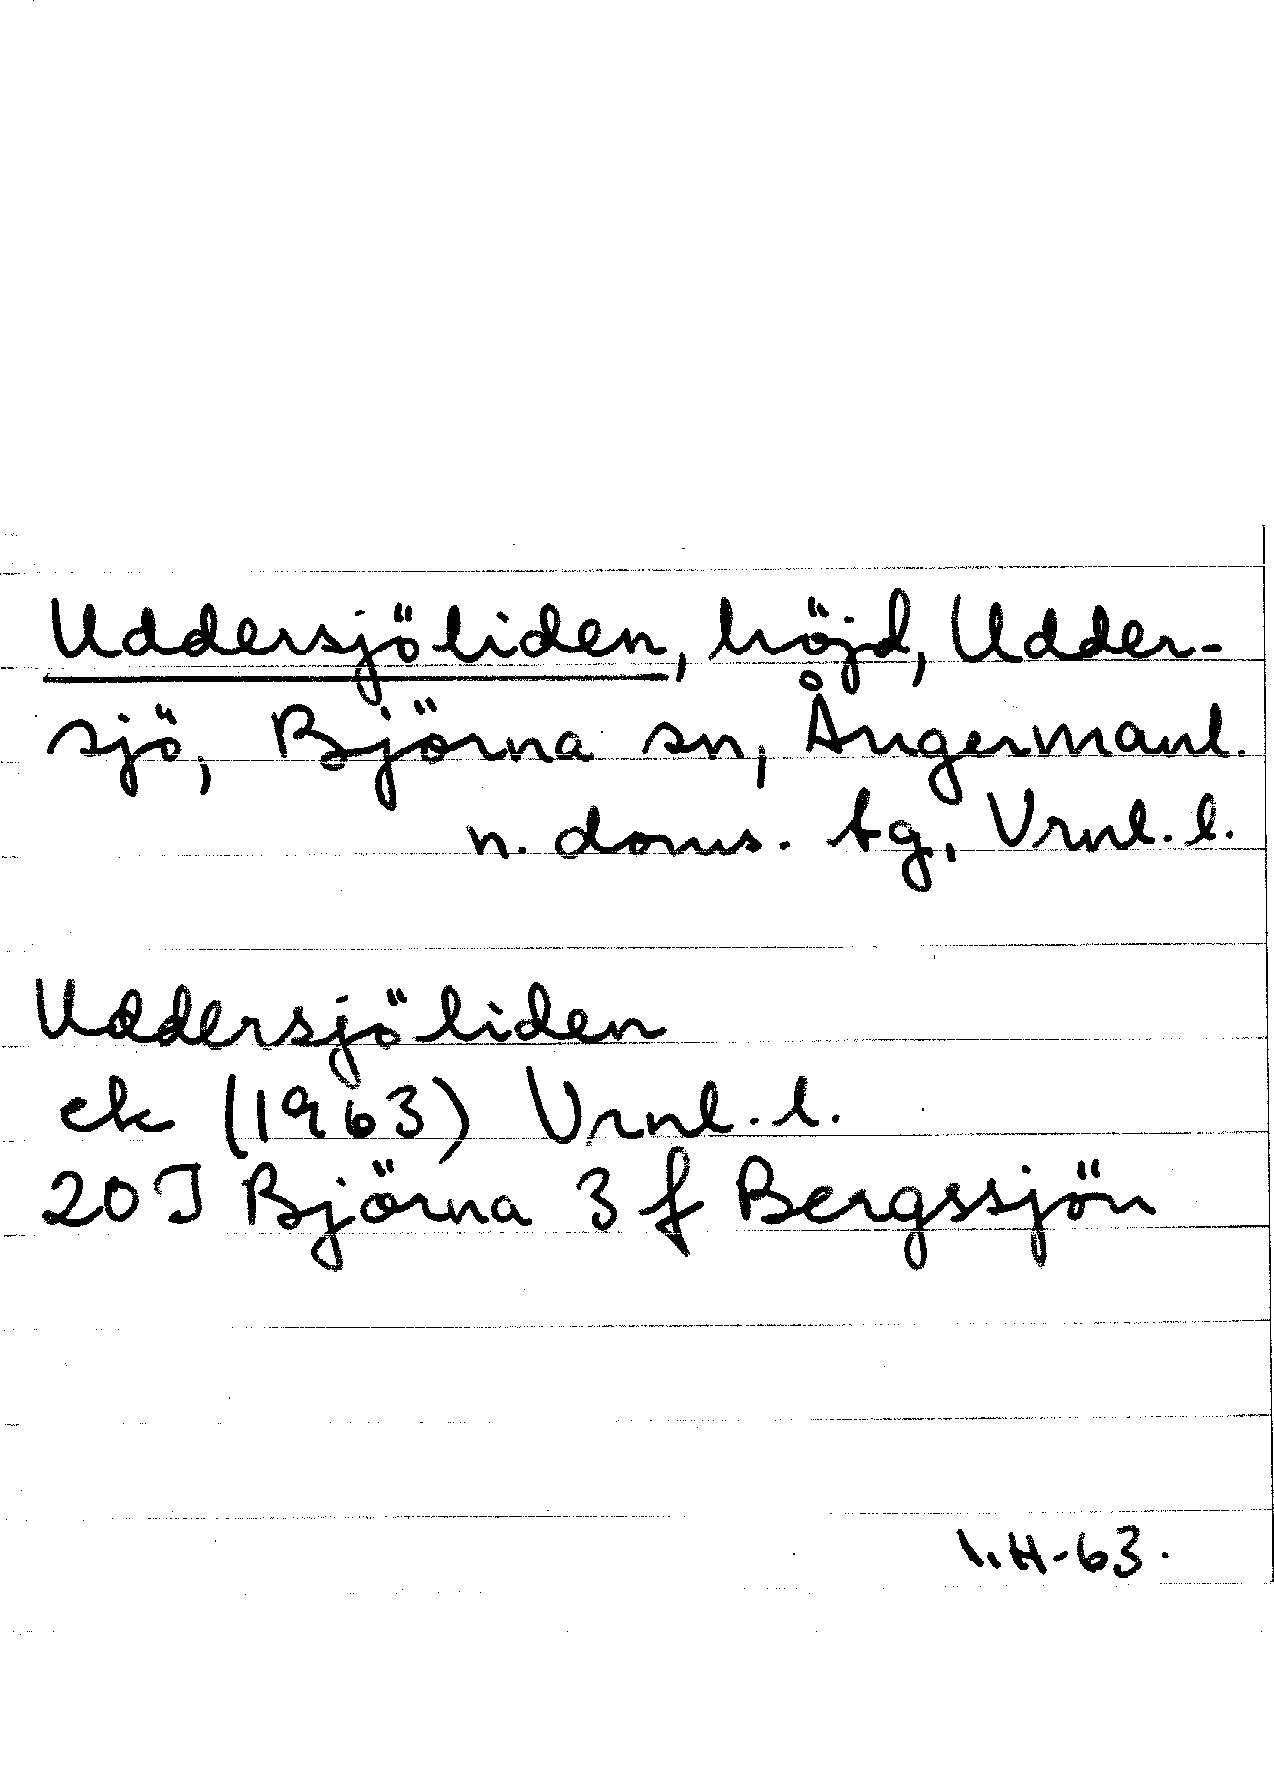 Uddersjöliden, höjd, Udder-
sjö, Björna sn, Ångermanl.
n. doms. tg, Vrnl. l.
Uddersjöliden
ek (1963) Vrnl. l.
20 J Björna 3 f Bergssjön
I.H-63.